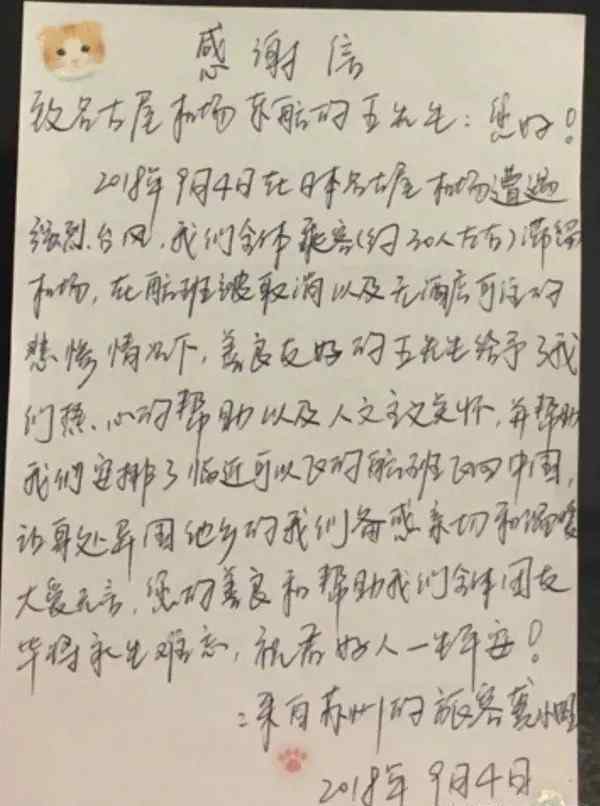 感谢信
致名古屋机场东航的王先生：您好！
2018年9月4日在日本名古屋机场遭遇
强烈台风，我们全体乘客(约30人左右)滞留
机场，在航班被取消以及无酒店可住的
悲惨情况下，善良友好的王先生给予了我
们、心的帮助以及人文主义关怀，并帮助
我们安排了临近可以飞的航班飞回中国，
让身处异国他乡的我们备感亲切和温暖
大爱无言，您的善良和帮助我们全体团友
毕将永生难忘，祝君好人一生平安！
：来自苏州的旅客
2018年9月4日